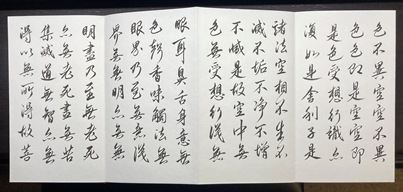 色不異空空不異
色色即是空空即
是色受想行識亦
復如是舍利子是
諸法空相不生不
滅不垢不淨不增
不減是故空中無
色無受想行識無
眼耳鼻舌身意無
色聲香味觸法無
眼界乃至無意識
界無無明亦無無
明盡乃至無老死
亦無老死盡無苦
集滅道無智亦無
得以無所得故菩